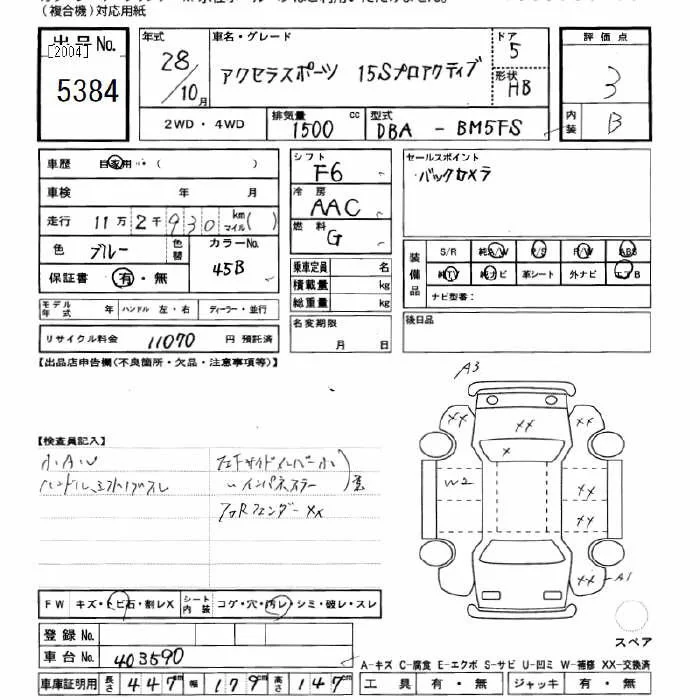 (複合機)対応用紙
出品No.
[2004]
5384
年式
28/10月
車名・グレード
アクセラスポーツ 15Sプロアクティブ
ドア
5
形状
HB
評価点
3
内装
B
2WD・4WD
排気量
1500 cc
型式
DBA - BM5FS
車歴 自家用 ( )
車検 年 月
走行 11万2千930 km マイル( )
色 ブルー 色替
カラーNo.
45B
保証書 有・無
シフト
F6
冷房
AAC
燃料
G
乗車定員 名
積載量 kg
総重量 kg
セールスポイント
バックカメラ
装備品
S/R 純A/W P/S P/W ABS
純TV 純ナビ 革シート 外ナビ エアB
ナビ型番:
モデル年式 年 ハンドル 左・右 ディーラー・並行
リサイクル料金 11070 円 預託済
名変期限
月 日
後日品
【出品店申告欄(不良箇所・欠品・注意事項等)】
【検査員記入】
小A、W
左F サイドメンバー小
インパネステー
歪
左右Rフェンダー XX
A3
XX
XX
X
W2
XX
XX
XX A1
FW キズ・トビ石・割レX
シート内装 コゲ・穴・汚レ・シミ・破レ・スレ
スペア
登録No.
車台No. 403590
A-キズ C-腐食 E-エクボ S-サビ U-凹ミ W-補修 XX-交換済
車庫証明用 長さ 447 cm 幅 179 cm 高さ 147 cm
工具 有・無 ジャッキ 有・無